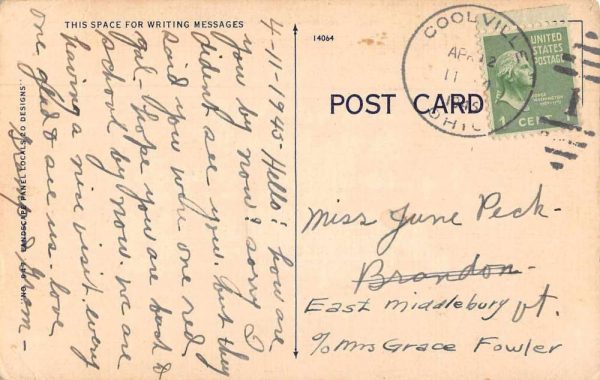 THIS SPACE FOR WRITING MESSAGES
4-11-1945-Hello! how are
you by now? sorry I
dident see you. but they
said you were one red
gal- hope you are back to
school by now. we are
having a nice visit. every
one glad to see us. love
Gram-
"NO. 947 LANDSCAPE PANEL LOCALS 20 DESIGNS"
14064
POST CARD
COOLVILLE
APR 12
11
OHIO
UNITED
STATES
POSTAGE
GEORGE WASHINGTON
1 CENT
Miss June Peck-
Brandon-
East Middlebury Vt.
℅ Mrs Grace Fowler